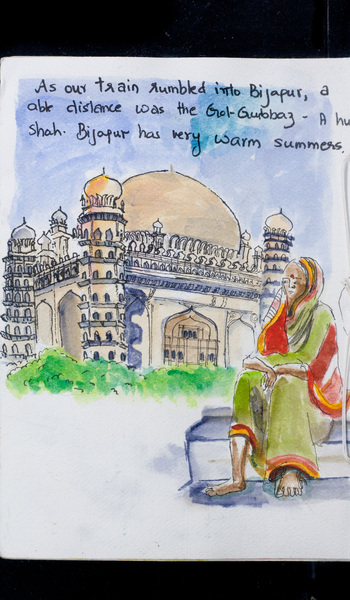 As our train rumbled into Bijapur, a
able distance was the Gol-Gumbaz - A hu
Shah. Bijapur has very warm summers.